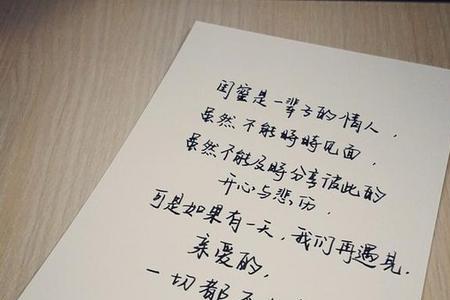 闺蜜是一辈子的情人，
虽然不能時時见面，
虽然不能及時分享彼此的
开心与悲伤，
可是如果有一天，我们再遇見.
亲爱的，
一切都不